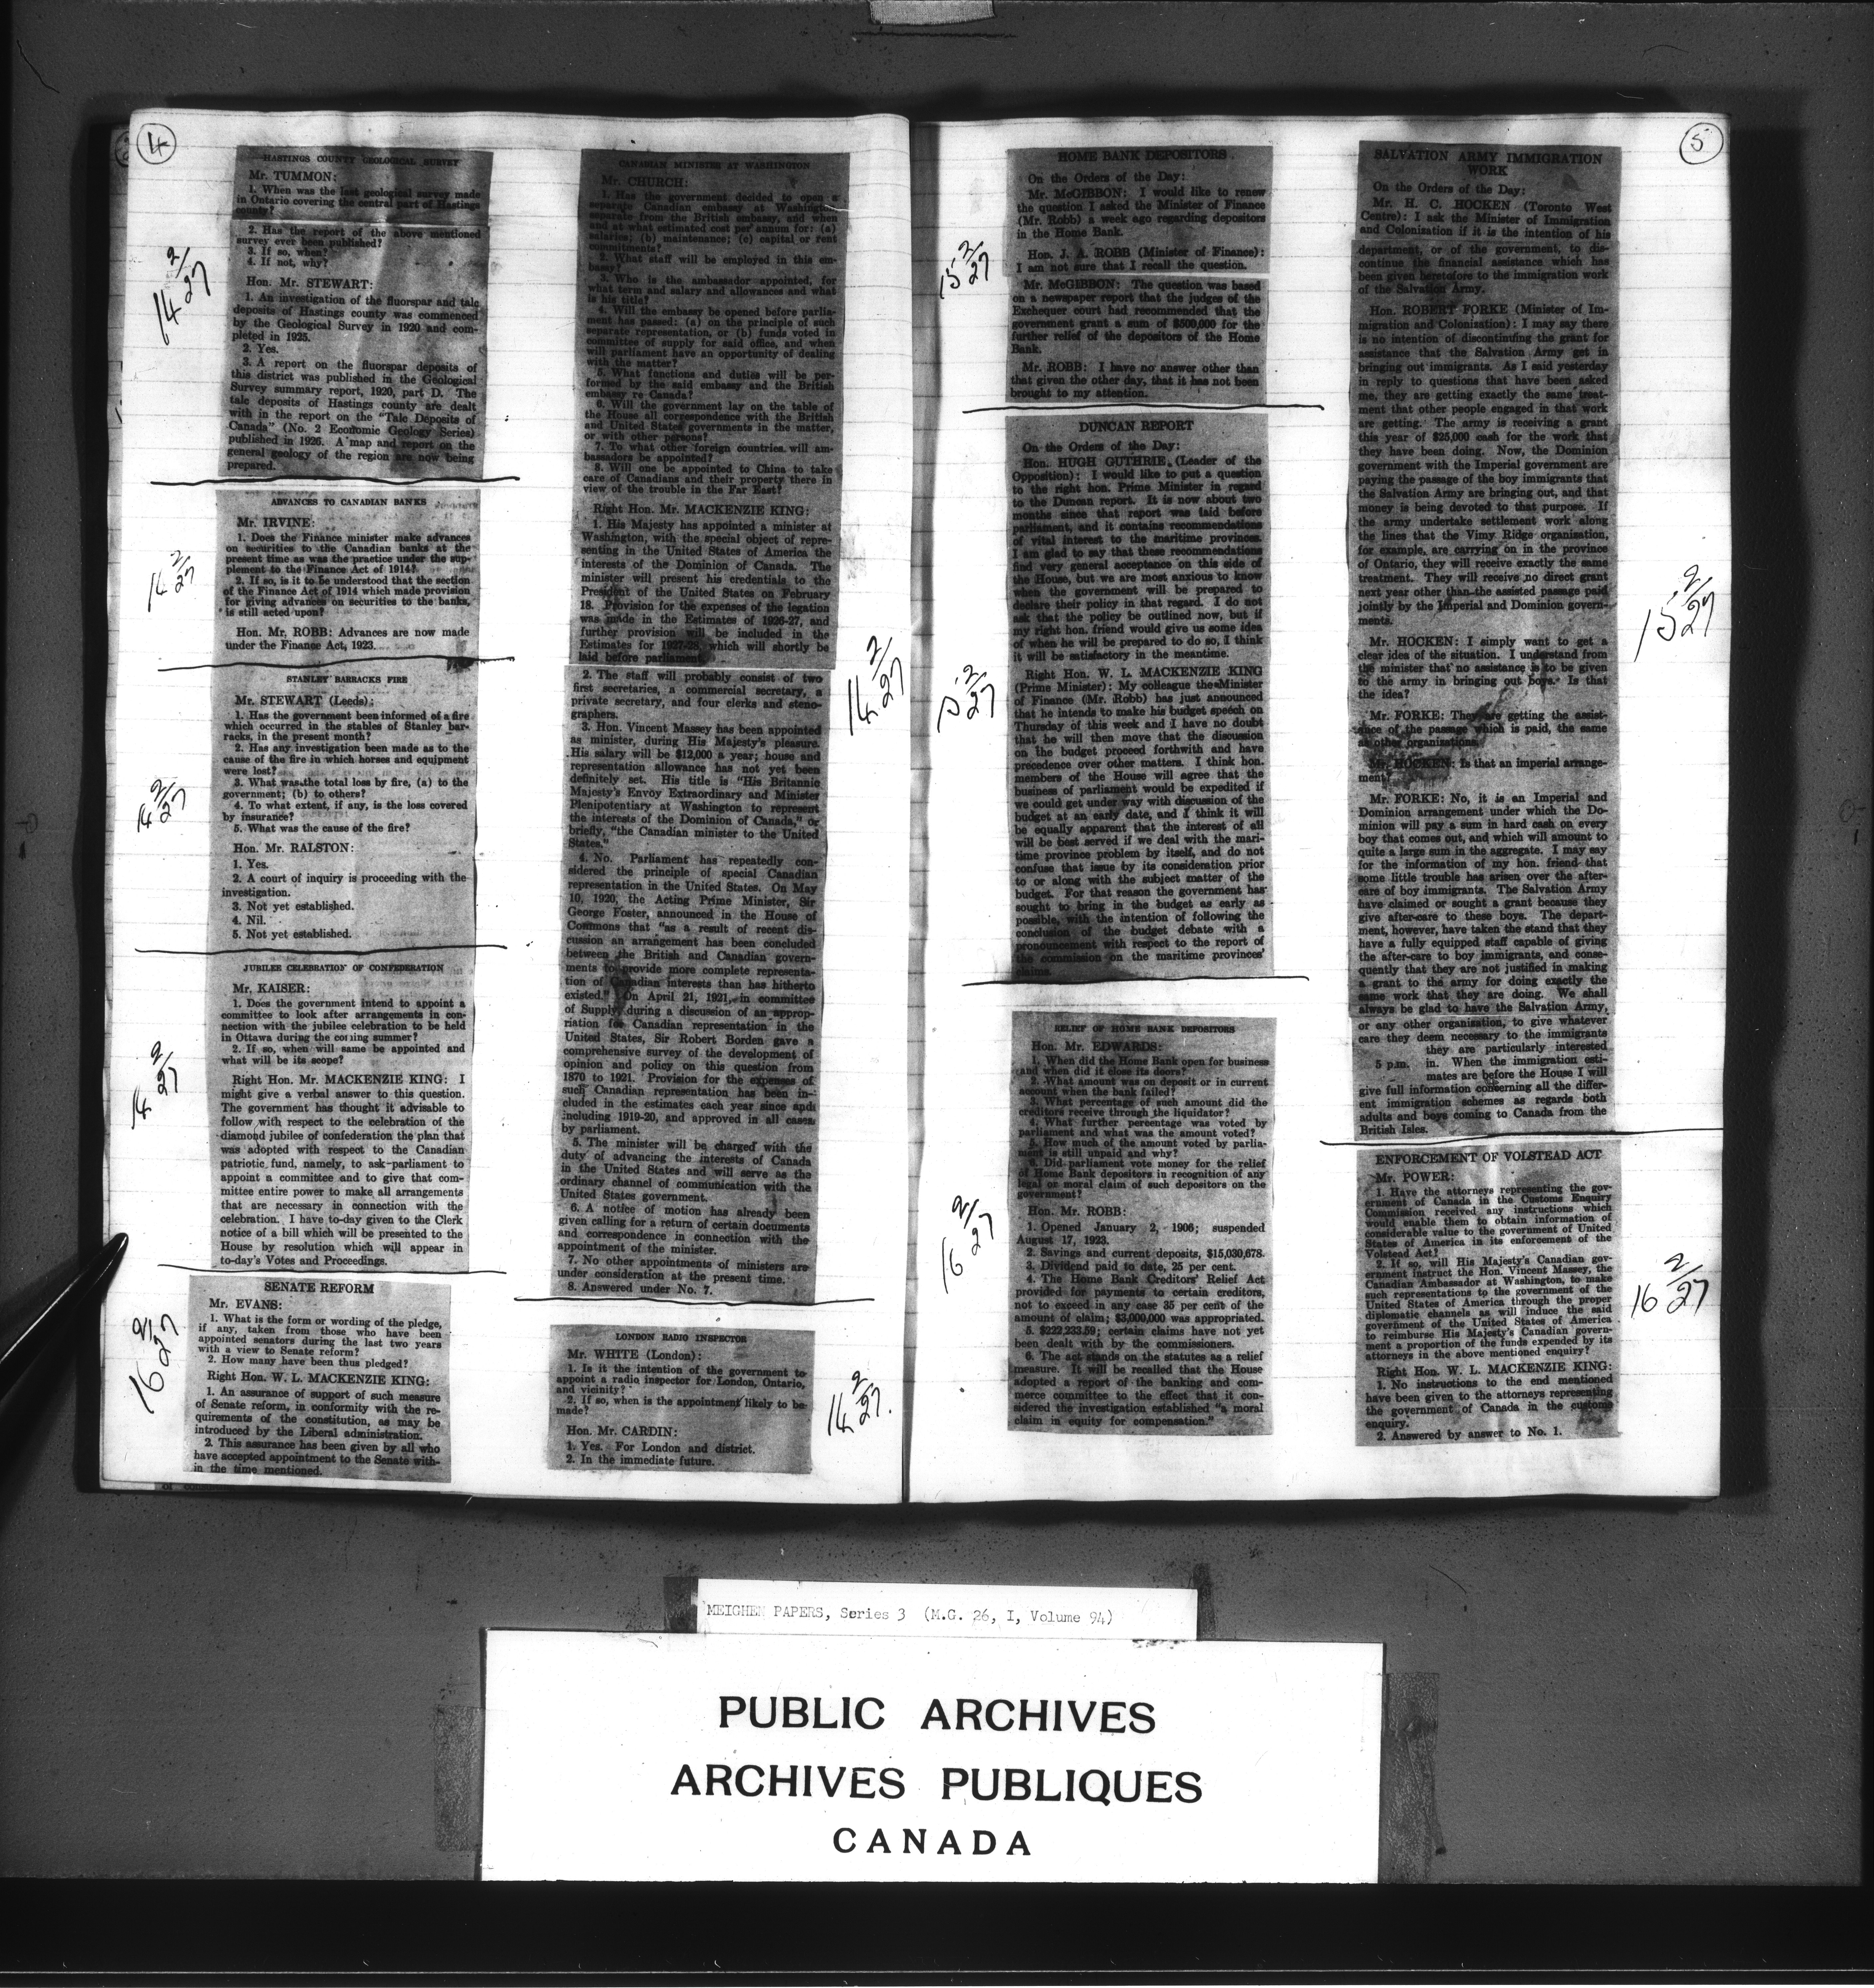 4
HASTINGS COUNTY GEOLOGICAL SURVEY
Mr. TUMMON:
1. When was the last geological survey made
in Ontario covering the central part of Hastings
county?
2. Has the report of the above mentioned
survey ever been published?
3. If so, when?
4. If not, why?
Hon. Mr. STEWART:
1. An investigation of the fluorspar and talc
deposits of Hastings county was commenced
by the Geological Survey in 1920 and com-
pleted in 1925.
2. Yes.
3. A report on the fluorspar deposits of
this district was published in the Geological
Survey summary report, 1920, part D. The
talc deposits of Hastings county are dealt
with in the report on the "Talc Deposits of
Canada" (No. 2 Economic Geology Series)
published in 1926. A map and report on the
general geology of the region are now being
prepared.
14 2/27
ADVANCES TO CANADIAN BANKS
Mr. IRVINE:
1. Does the Finance minister make advances
on securities to the Canadian banks at the
present time as was the practice under the sup-
plement to the Finance Act of 1914?
2. If so, is it to be understood that the section
of the Finance Act of 1914 which made provision
for giving advances on securities to the banks,
is still acted upon?
Hon. Mr. ROBB: Advances are now made
under the Finance Act, 1923.
14 2/27
STANLEY BARRACKS FIRE
Mr. STEWART (Leeds):
1. Has the government been informed of a fire
which occurred in the stables of Stanley bar-
racks, in the present month?
2. Has any investigation been made as to the
cause of the fire in which horses and equipment
were lost?
3. What was the total loss by fire, (a) to the
government; (b) to others?
4. To what extent, if any, is the loss covered
by insurance?
5. What was the cause of the fire?
Hon. Mr. RALSTON:
1. Yes.
2. A court of inquiry is proceeding with the
investigation.
3. Not yet established.
4. Nil.
5. Not yet established.
14 2/27
JUBILEE CELEBRATION OF CONFEDERATION
Mr. KAISER:
1. Does the government intend to appoint a
committee to look after arrangements in con-
nection with the jubilee celebration to be held
in Ottawa during the coming summer?
2. If so, when will same be appointed and
what will be its scope?
Right Hon. Mr. MACKENZIE KING: I
might give a verbal answer to this question.
The government has thought it advisable to
follow with respect to the celebration of the
diamond jubilee of confederation the plan that
was adopted with respect to the Canadian
patriotic fund, namely, to ask parliament to
appoint a committee and to give that com-
mittee entire power to make all arrangements
that are necessary in connection with the
celebration. I have to-day given to the Clerk
notice of a bill which will be presented to the
House by resolution which will appear in
to-day's Votes and Proceedings.
14 2/27
SENATE REFORM
Mr. EVANS:
1. What is the form or wording of the pledge,
if any, taken from those who have been
appointed senators during the last two years
with a view to Senate reform?
2. How many have been thus pledged?
Right Hon. W. L. MACKENZIE KING:
1. An assurance of support of such measure
of Senate reform, in conformity with the re-
quirements of the constitution, as may be
introduced by the Liberal administration.
2. This assurance has been given by all who
have accepted appointment to the Senate with-
in the time mentioned.
16 2/27
CANADIAN MINISTER AT WASHINGTON
Mr. CHURCH:
1. Has the government decided to open a
separate Canadian embassy at Washington
separate from the British embassy, and when
and at what estimated cost per annum for: (a)
salaries; (b) maintenance; (c) capital or rent
commitments?
2. What staff will be employed in this em-
bassy?
3. Who is the ambassador appointed, for
what term and salary and allowances and what
is his title?
4. Will the embassy be opened before parlia-
ment has passed: (a) on the principle of such
separate representation, or (b) funds voted in
committee of supply for said office, and when
will parliament have an opportunity of dealing
with the matter?
5. What functions and duties will be per-
formed by the said embassy and the British
embassy re Canada?
6. Will the government lay on the table of
the House all correspondence with the British
and United States governments in the matter,
or with other persons?
7. To what other foreign countries will am-
bassadors be appointed?
8. Will one be appointed to China to take
care of Canadians and their property there in
view of the trouble in the Far East?
Right Hon. Mr. MACKENZIE KING:
1. His Majesty has appointed a minister at
Washington, with the special object of repre-
senting in the United States of America the
interests of the Dominion of Canada. The
minister will present his credentials to the
President of the United States on February
18. Provision for the expenses of the legation
was made in the Estimates of 1926-27, and
further provision will be included in the
Estimates for 1927-28 which will shortly be
laid before parliament.
2. The staff will probably consist of two
first secretaries, a commercial secretary, a
private secretary, and four clerks and steno-
graphers.
3. Hon. Vincent Massey has been appointed
as minister, during His Majesty's pleasure.
His salary will be $12,000 a year; house and
representation allowance has not yet been
definitely set. His title is "His Britannic
Majesty's Envoy Extraordinary and Minister
Plenipotentiary at Washington to represent
the interests of the Dominion of Canada," or
briefly, "the Canadian minister to the United
States."
4. No. Parliament has repeatedly con-
sidered the principle of special Canadian
representation in the United States. On May
10, 1920, the Acting Prime Minister, Sir
George Foster, announced in the House of
Commons that "as a result of recent dis-
cussion an arrangement has been concluded
between the British and Canadian govern-
ments to provide more complete representa-
tion of Canadian interests than has hitherto
existed." On April 21, 1921, in committee
of Supply during a discussion of an approp-
riation for Canadian representation in the
United States, Sir Robert Borden gave a
comprehensive survey of the development of
opinion and policy on this question from
1870 to 1921. Provision for the expenses of
such Canadian representation has been in-
cluded in the estimates each year since and
including 1919-20, and approved in all cases
by parliament.
5. The minister will be charged with the
duty of advancing the interests of Canada
in the United States and will serve as the
ordinary channel of communication with the
United States government.
6. A notice of motion has already been
given calling for a return of certain documents
and correspondence in connection with the
appointment of the minister.
7. No other appointments of ministers are
under consideration at the present time.
8. Answered under No. 7.
14 2/27
LONDON RADIO INSPECTOR
Mr. WHITE (London):
1. Is it the intention of the government to
appoint a radio inspector for London, Ontario,
and vicinity?
2. If so, when is the appointment likely to be
made?
Hon. Mr. CARDIN:
1. Yes. For London and district.
2. In the immediate future.
14 2/27.
5
HOME BANK DEPOSITORS
On the Orders of the Day:
Mr. McGIBBON: I would like to renew
the question I asked the Minister of Finance
(Mr. Robb) a week ago regarding depositors
in the Home Bank.
Hon. J. A. ROBB (Minister of Finance):
I am not sure that I recall the question.
Mr. McGIBBON: The question was based
on a newspaper report that the judges of the
Exchequer court had recommended that the
government grant a sum of $500,000 for the
further relief of the depositors of the Home
Bank.
Mr. ROBB: I have no answer other than
that given the other day, that it has not been
brought to my attention.
15 2/27
DUNCAN REPORT
On the Orders of the Day:
Hon. HUGH GUTHRIE (Leader of the
Opposition): I would like to put a question
to the right hon. Prime Minister in regard
to the Duncan report. It is now about two
months since that report was laid before
parliament, and it contains recommendations
of vital interest to the maritime provinces.
I am glad to say that these recommendations
find very general acceptance on this side of
the House, but we are most anxious to know
when the government will be prepared to
declare their policy in that regard. I do not
ask that the policy be outlined now, but if
my right hon. friend would give us some idea
of when he will be prepared to do so, I think
it will be satisfactory in the meantime.
Right Hon. W. L. MACKENZIE KING
(Prime Minister): My colleague the Minister
of Finance (Mr. Robb) has just announced
that he intends to make his budget speech on
Thursday of this week and I have no doubt
that he will then move that the discussion
on the budget proceed forthwith and have
precedence over other matters. I think hon.
members of the House will agree that the
business of parliament would be expedited if
we could get under way with discussion of the
budget at an early date, and I think it will
be equally apparent that the interest of all
will be best served if we deal with the mari-
time province problem by itself, and do not
confuse that issue by its consideration prior
to or along with the subject matter of the
budget. For that reason the government has
sought to bring in the budget as early as
possible, with the intention of following the
conclusion of the budget debate with a
pronouncement with respect to the report of
the commission on the maritime provinces'
claims.
15 2/27
RELIEF OF HOME BANK DEPOSITORS
Hon. Mr. EDWARDS:
1. When did the Home Bank open for business
and when did it close its doors?
2. What amount was on deposit or in current
account when the bank failed?
3. What percentage of such amount did the
creditors receive through the liquidator?
4. What further percentage was voted by
parliament and what was the amount voted?
5. How much of the amount voted by parlia-
ment is still unpaid and why?
6. Did parliament vote money for the relief
of Home Bank depositors in recognition of any
legal or moral claim of such depositors on the
government?
Hon. Mr. ROBB:
1. Opened January 2, 1906; suspended
August 17, 1923.
2. Savings and current deposits, $15,030,678.
3. Dividend paid to date, 25 per cent.
4. The Home Bank Creditors' Relief Act
provided for payments to certain creditors,
not to exceed in any case 35 per cent of the
amount of claim; $3,000,000 was appropriated.
5. $222,233.59; certain claims have not yet
been dealt with by the commissioners.
6. The act stands on the statutes as a relief
measure. It will be recalled that the House
adopted a report of the banking and com-
merce committee to the effect that it con-
sidered the investigation established "a moral
claim in equity for compensation."
16 2/27
SALVATION ARMY IMMIGRATION
WORK
On the Orders of the Day:
Mr. H. C. HOCKEN (Toronto West
Centre): I ask the Minister of Immigration
and Colonization if it is the intention of his
department, or of the government, to dis-
continue the financial assistance which has
been given heretofore to the immigration work
of the Salvation Army.
Hon. ROBERT FORKE (Minister of Im-
migration and Colonization): I may say there
is no intention of discontinuing the grant for
assistance that the Salvation Army get in
bringing out immigrants. As I said yesterday
in reply to questions that have been asked
me, they are getting exactly the same treat-
ment that other people engaged in that work
are getting. The army is receiving a grant
this year of $25,000 cash for the work that
they have been doing. Now, the Dominion
government with the Imperial government are
paying the passage of the boy immigrants that
the Salvation Army are bringing out, and that
money is being devoted to that purpose. If
the army undertake settlement work along
the lines that the Vimy Ridge organization,
for example, are carrying on in the province
of Ontario, they will receive exactly the same
treatment. They will receive no direct grant
next year other than the assisted passage paid
jointly by the Imperial and Dominion govern-
ments.
Mr. HOCKEN: I simply want to get a
clear idea of the situation. I understand from
the minister that no assistance is to be given
to the army in bringing out boys. Is that
the idea?
Mr. FORKE: They are getting the assist-
ance of the passage which is paid, the same
as other organizations.
Mr. HOCKEN: Is that an imperial arrange-
ment?
Mr. FORKE: No, it is an Imperial and
Dominion arrangement under which the Do-
minion will pay a sum in hard cash on every
boy that comes out, and which will amount to
quite a large sum in the aggregate. I may say
for the information of my hon. friend that
some little trouble has arisen over the after-
care of boy immigrants. The Salvation Army
have claimed or sought a grant because they
give after-care to these boys. The depart-
ment, however, have taken the stand that they
have a fully equipped staff capable of giving
the after-care to boy immigrants, and conse-
quently that they are not justified in making
a grant to the army for doing exactly the
same work that they are doing. We shall
always be glad to have the Salvation Army,
or any other organization, to give whatever
care they deem necessary to the immigrants
they are particularly interested
5 p.m. in. When the immigration esti-
mates are before the House I will
give full information concerning all the differ-
ent immigration schemes as regards both
adults and boys coming to Canada from the
British Isles.
15 2/27
ENFORCEMENT OF VOLSTEAD ACT
Mr. POWER:
1. Have the attorneys representing the gov-
ernment of Canada in the Customs Enquiry
Commission received any instructions which
would enable them to obtain information of
considerable value to the government of United
States of America in its enforcement of the
Volstead Act?
2. If so, will His Majesty's Canadian gov-
ernment instruct the Hon. Vincent Massey, the
Canadian Ambassador at Washington, to make
such representations to the government of the
United States of America through the proper
diplomatic channels as will induce the said
government of the United States of America
to reimburse His Majesty's Canadian govern-
ment a proportion of the funds expended by its
attorneys in the above mentioned enquiry?
Right Hon. W. L. MACKENZIE KING:
1. No instructions to the end mentioned
have been given to the attorneys representing
the government of Canada in the customs
enquiry.
2. Answered by answer to No. 1.
16 2/27
MEIGHEN PAPERS, Series 3 (M.G. 26, I, Volume 94)
PUBLIC ARCHIVES
ARCHIVES PUBLIQUES
CANADA